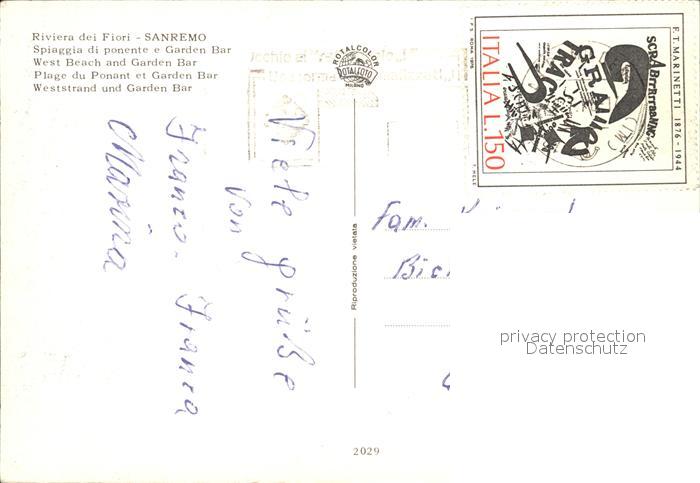 Riviera dei Fiori - SANREMO
Spiaggia di ponente e Garden Bar
West Beach and Garden Bar
Plage du Ponant et Garden Bar
Weststrand und Garden Bar
ROTALCOLOR
ROTALFOTO
MILANO
Viele Grüße
von
Franco - Franca
Marina
Riproduzione vietata
2029
Fam.
ITALIA L.150
F.T. MARINETTI 1876 - 1944
SCRABrrRrraaNNG
GRAAAQ
TRAC
privacy protection
Datenschutz